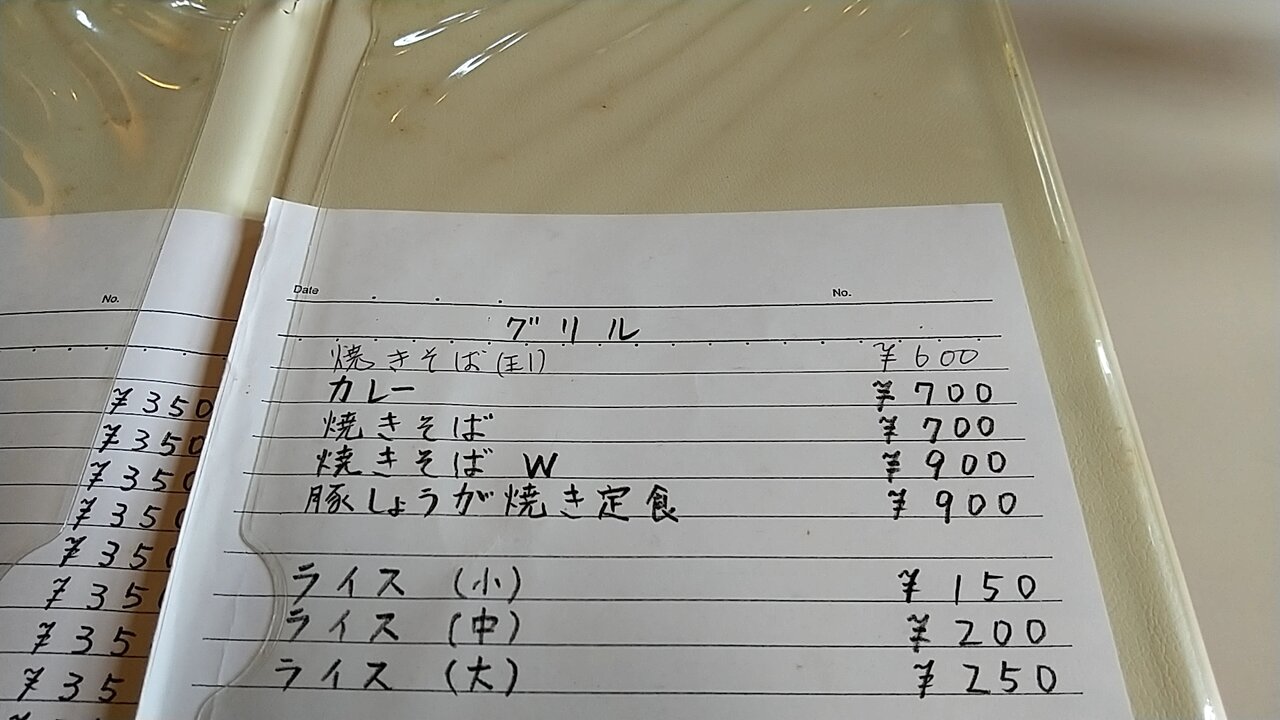 No.
¥350
¥350
¥350
¥350
¥350
¥35
¥35
¥35
Date
No.
グリル
焼きそば ¥600
カレー ¥700
焼きそば ¥700
焼きそば W ¥900
豚しょうが焼き定食 ¥900
ライス (小) ¥150
ライス (中) ¥200
ライス (大) ¥250